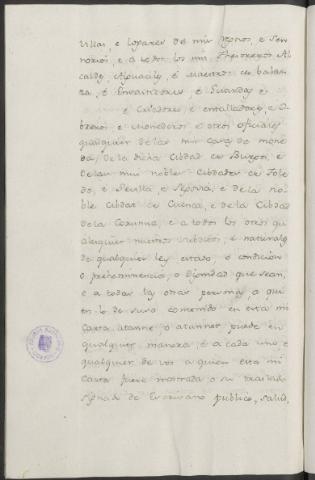 Villas, e Logares de mis Regnos, e Sen-
norios, e a todos los mis Thesoreros Al
caldes, Alguaciles, e Maestros de balan
za, e Ensaiadores, e Guardas e
e Criadores e entalladores, e O-
breros e monederos e otros oficiales
qualquier de las mis casas de mone
da, de la dicha Cibdad de Burgos, e
de las mis nobles Cibdades de Tole
do, e Sevilla, e Segovia, e de la no
ble Cibdat de Cuenca, e de la Cibdad
de la Corunna, e a todos los otros qu
alesquier nuestros subditos, e naturales
de qualquier ley estado, o condicion
o prehemmencia, o dignidad que sean,
e a todas las otras personas, a qui
en lo de suso contenido en esta mi
Carta atanne, o atanner puede en
qualquier manera, e a cada uno e
qualquier de vos a quien esta mi
Carta fuere mostrada o su traslado
signado de Escrivano publico, salud,